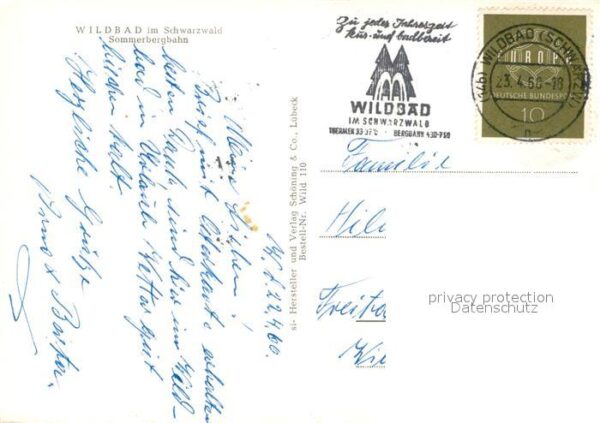 WILDBAD im Schwarzwald
Sommerbergbahn
W. d. 22.4.60.
Meine Lieben!
Brief mit Osterkarte erhalten
besten Dank sind hier im Wild-
bad in Urlaub Wetter gut
Herzliche Grüße
si- Hersteller und Verlag Schöning & Co., Lübeck
Bestell-Nr. Wild 110
Zu jeder Jahreszeit
kur- und badbereit
WILDBAD
IM SCHWARZWALD
THERMEN 33-37°C · BERGBAHN 430-750
WILDBAD (SCHWARZW)
(14b)
23.4.60-18
n
EUROPA
DEUTSCHE BUNDESPOST
10
Familie
Hil
Freita
privacy protection
Datenschutz